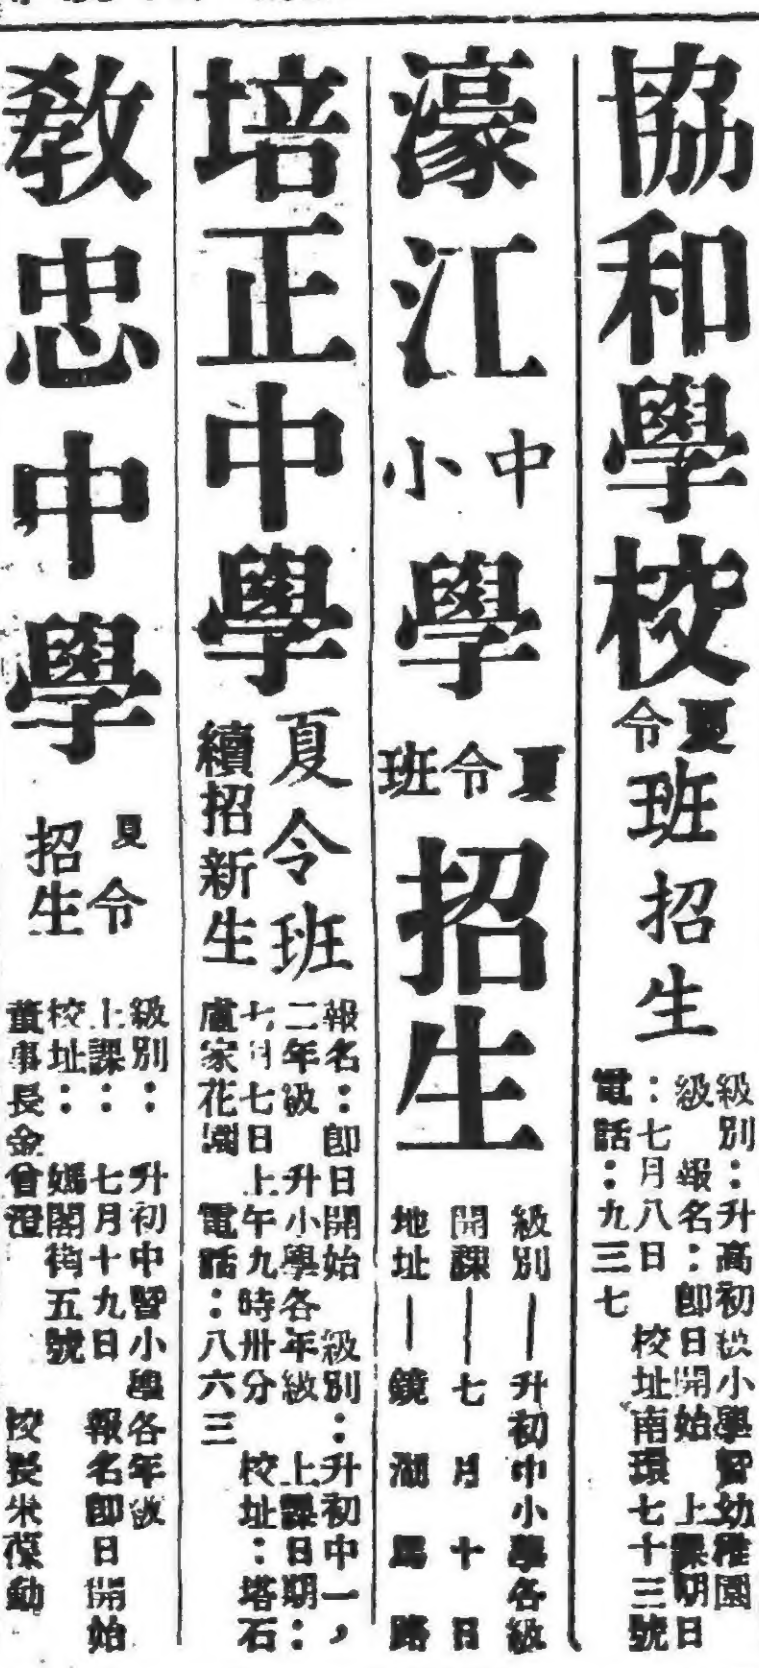 協和學校
夏令
班招生
級別：升高初級小學暨幼稚園
級 報名：即日開始 上課期日
：七月八日 校址南環七十三號
電話：九三七
濠江
中小
學
夏令班
招生
級別－升初中小學各級
開課－七月十日
地址－鏡湖馬路
培正中學
夏令班
續招新生
報名：即日開始 級別：升初中一，
二年級 升小學各年級 上課日期：
七月七日上午九時卅分 校址：塔石
盧家花園 電話：八六三
教忠中學
夏令
招生
級別： 升初中暨小學各年級
上課： 七月十九日 報名即日開始
校址： 媽閣街五號
董事長金曾澄 校長